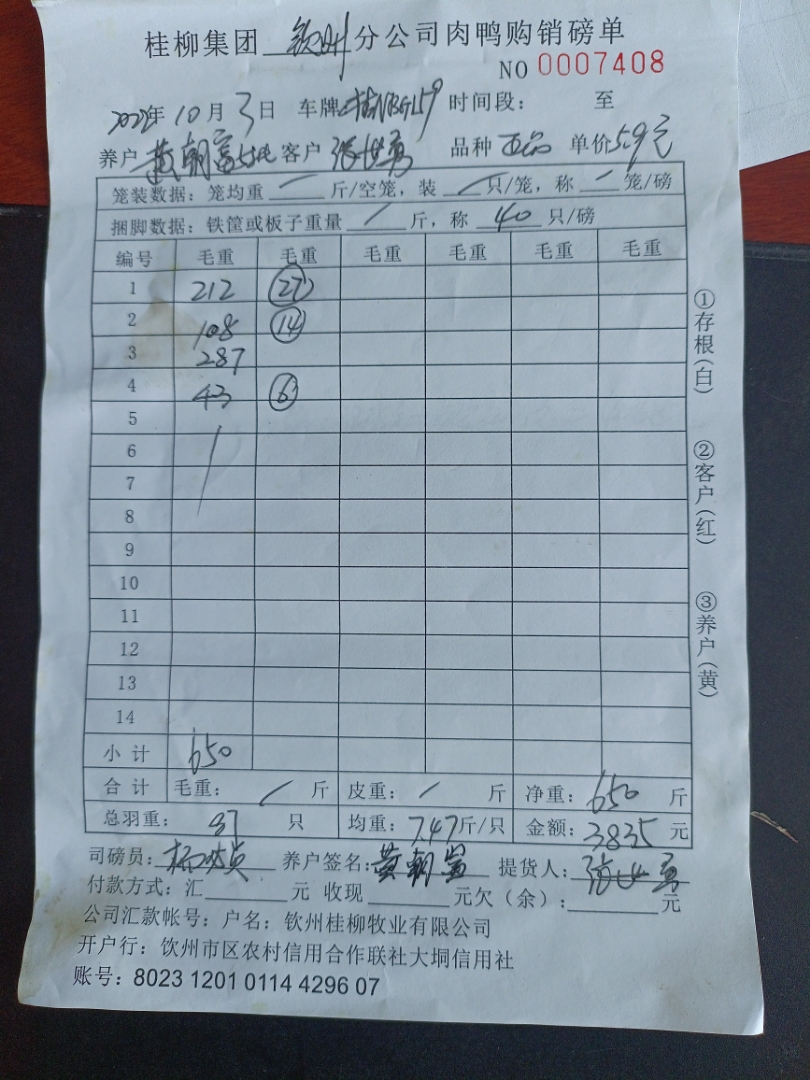 桂柳集团 钦州 分公司肉鸭购销磅单
NO 0007408
2022年 10月 3日 车牌 时间段： 至
养户 黄朝富 客户 张世勇 品种 正品 单价 5.9元
笼装数据：笼均重 / 斤/空笼，装 / 只/笼，称 / 笼/磅
捆脚数据：铁筐或板子重量 / 斤，称 40 只/磅
编号 毛重 毛重 毛重 毛重 毛重 毛重
1 212 27
2 108 14
3 287
4 43 6
5
6
7
8
9
10
11
12
13
14
小计 650
合计 毛重： / 斤 皮重： / 斤 净重： 650 斤
总羽重： 87 只 均重： 7.47斤/只 金额： 3835 元
司磅员： 养户签名： 黄朝富 提货人： 张世勇
付款方式：汇 元 收现 元欠（余）： 元
公司汇款帐号：户名：钦州桂柳牧业有限公司
开户行：钦州市区农村信用合作联社大垌信用社
账号：8023 1201 0114 4296 07
①存根(白)
②客户(红)
③养户(黄)